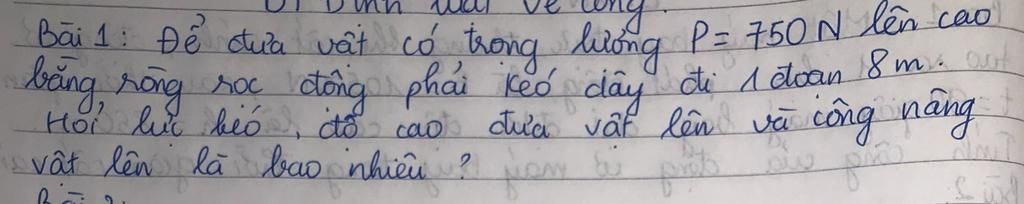 Định luật về công.
Bài 1: Để đưa vật có trọng lượng P = 750 N lên cao
bằng ròng rọc động phải kéo dây đi 1 đoạn 8m.
Hỏi lực kéo, độ cao đưa vật lên và công nâng
vật lên là bao nhiêu?